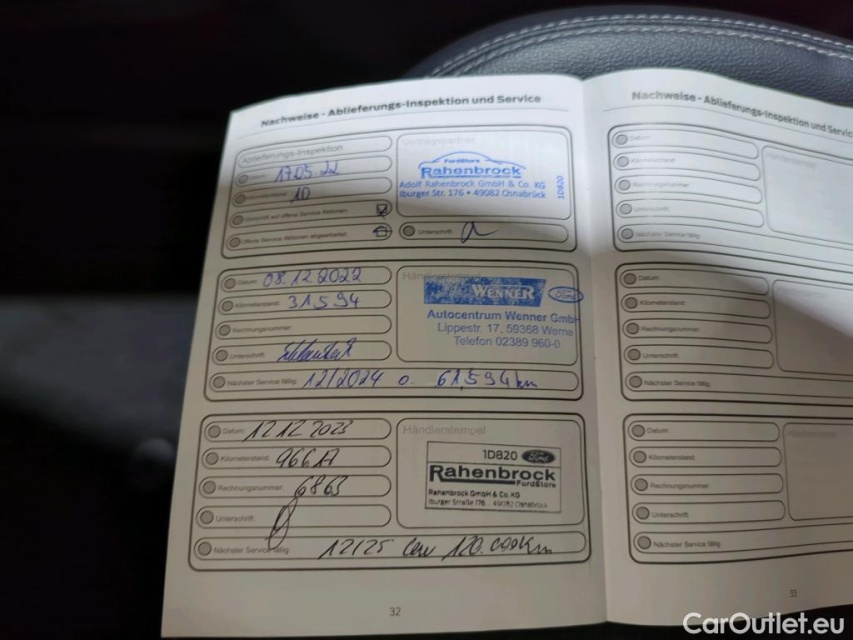 Nachweise - Ablieferungs-Inspektion und Service
Ablieferungs-Inspektion
Vertragspartner
Datum 17.05.22
10
FordStore
Rahenbrock
Adolf Rahenbrock GmbH & Co. KG
Iburger Str. 176 • 49082 Osnabrück
1D820
Offene Service Aktionen abgearbeitet
Unterschrift
Datum 08.12.2022
Kilometerstand 31.594
Rechnungsnummer
Unterschrift
Nächster Service fällig 12/2024 o. 61.594 km
Händlerstempel
WENNER Ford
Autocentrum Wenner GmbH
Lippestr. 17, 59368 Werne
Telefon 02389 960-0
Datum 12 12 2023
Kilometerstand
Rechnungsnummer 6863
Unterschrift
Nächster Service fällig 12/25 120.000km
Händlerstempel
1D820 Ford
Rahenbrock
FordStore
Rahenbrock GmbH & Co. KG
Iburger Straße 176 . 49082 Osnabrück
32
Nachweise - Ablieferungs-Inspektion und Servic
Datum
Kilometerstand
Rechnungsnummer
Unterschrift
Nächster Service fällig
Datum
Kilometerstand
Rechnungsnummer
Unterschrift
Nächster Service fällig
Datum
Kilometerstand
Rechnungsnummer
Unterschrift
Nächster Service fällig
31
CarOutlet.eu